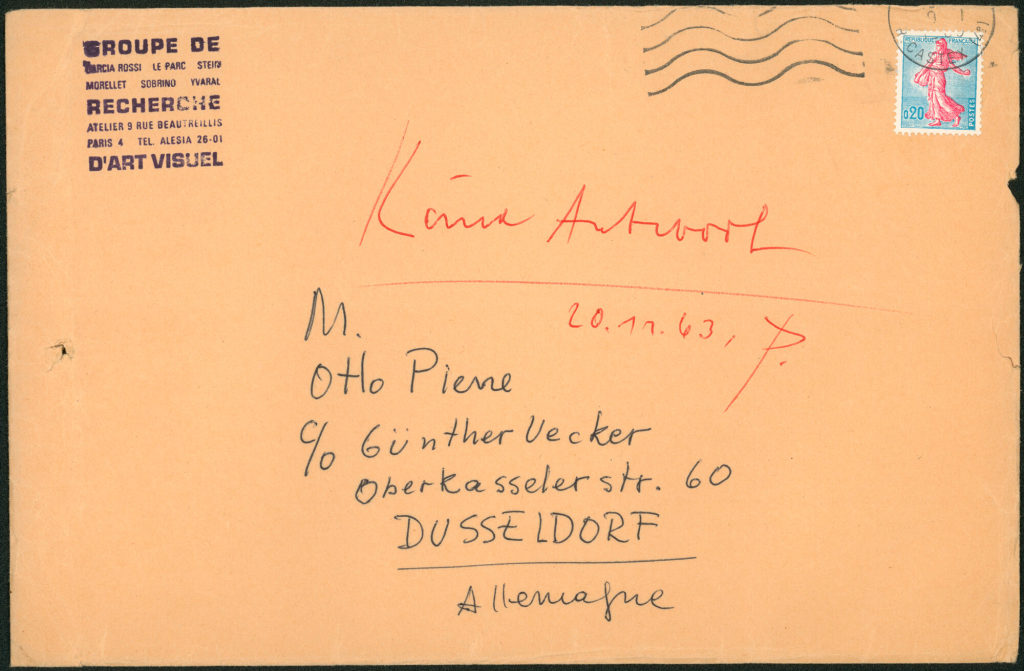 GROUPE DE
GARCIA ROSSI LE PARC STEIN
MORELLET SOBRINO YVARAL
RECHERCHE
ATELIER 9 RUE BEAUTREILLIS
PARIS 4 TEL. ALESIA 26-01
D'ART VISUEL
REPUBLIQUE FRANÇAISE
0,20
POSTES
Keine Antwort
20.11.63, P.
M.
Otto Piene
c/o Günther Uecker
Oberkasseler str. 60
DUSSELDORF
Allemagne